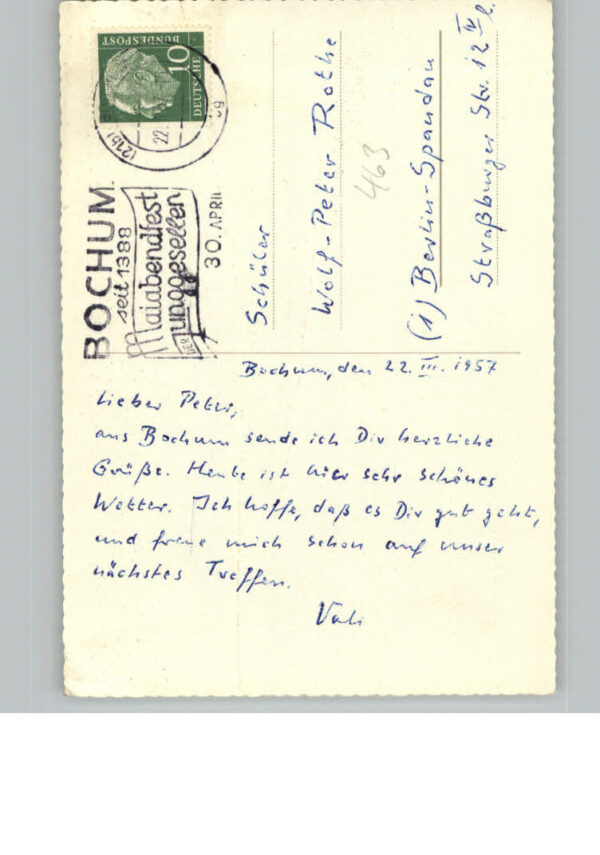 DEUTSCHE
BUNDESPOST
10
(21b)
22.
BOCHUM
seit 1388
Maiabendfest
DER Junggesellen
30. APRIL
Schüler
Wolf-Peter Rothe
463
(1) Berlin-Spandau
Straßburger Str. 12 IV l.
Bochum, den 22. III. 1957
Lieber Peter,
aus Bochum sende ich Dir herzliche
Grüße. Heute ist hier sehr schönes
Wetter. Ich hoffe, daß es Dir gut geht,
und freue mich schon auf unser
nächstes Treffen.
Vati